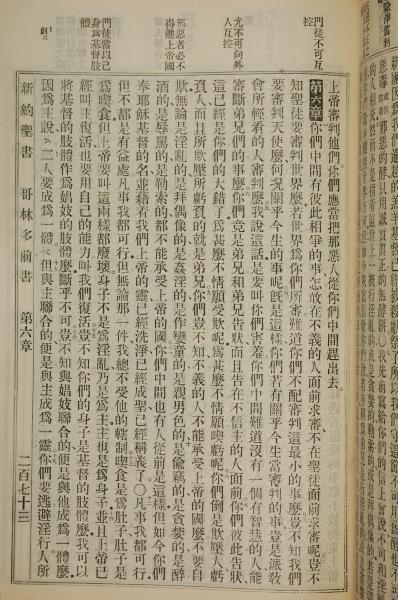 門徒不可互
控
尤不可向外
人互控
邪惡者必不
得進上帝國
門徒當以己
身爲基督肢
上帝審判他們你們應當把那惡人從你們中間趕出去。
第六章 你們中間有彼此相爭的事怎敢在不義的人面前求審不在聖徒面前求審呢豈不
知聖徒要審判世界麼若世界爲你們所審難道你們不配審判這最小的事麼豈不知我們
要審判天使麼何況關乎今生的事呢旣是這樣你們若有關乎今生當審判的事豈是派敎
會所輕看的人審判麼我說這話是要叫你們害羞你們中間難道沒有一個有智慧的人能
審斷弟兄們的事麼你們竟是弟兄和弟兄告狀而且告在不信主的人面前你們彼此告狀
這已經是你們的大錯了爲甚麼不情願受欺呢爲甚麼不情願喫虧呢你們倒是欺壓人虧
負人而且所欺壓所虧負的就是弟兄你們豈不知不義的人不能承受上帝的國麼不要自
欺無論是淫亂的是拜偶像的是姦淫的是作孌童的是親男色的是偷竊的是貪婪的是醉
酒的是辱罵的是勒索的都不能承受上帝的國你們中間也有人從前是這樣但如今你們
奉耶穌基督的名並藉着我們上帝的靈已經洗淨已經成聖已經稱義了〇凡事我都可行
但不都是有益處凡事我都可行但無論那一件我總不受他的轄制喫食是爲肚子肚子是
爲喫食但上帝要叫這兩樣都廢壞身子不是爲淫亂乃是爲主主也是爲身子並且上帝已
經叫主復活也要用自己的能力叫我們復活豈不知你們的身子是基督的肢體麼我可以
將基督的肢體作爲娼妓的肢體麼斷乎不可豈不知與娼妓聯合的便是與他成爲一體麼
因爲主說二人要成爲一體但與主聯合的便是與主成爲一靈你們要逃避淫行人所
新約聖書 哥林多前書 第六章 二百七十三